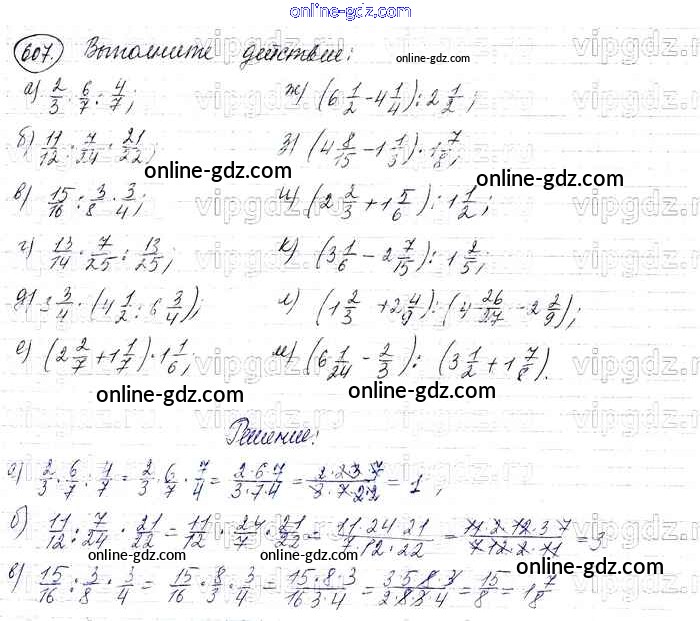 online-gdz.com
607. Выполните действие:
а) 2/3 · 6/7 : 4/7; ж) (6 1/2 - 4 1/4) : 2 1/2;
б) 11/12 : 7/24 · 21/22; з) (4 8/15 - 1 1/3) · 1 7/8;
online-gdz.com
online-gdz.com
в) 15/16 : 3/8 · 3/4; и) (2 2/3 + 1 5/6) : 1 1/2;
г) 13/14 · 7/25 : 13/25; к) (3 1/6 - 2 7/15) : 1 2/5;
online-gdz.com
online-gdz.com
д) 3/4 · (4 1/2 : 6 3/4); л) (1 2/3 + 2 4/9) : (4 26/27 - 2 2/9);
е) (2 2/7 + 1 1/7) · 1 1/6; м) (6 1/24 - 2/3) : (3 1/2 + 1 7/8).
online-gdz.com
online-gdz.com
Решение:
online-gdz.com
а) 2/3 · 6/7 : 4/7 = 2/3 · 6/7 · 7/4 = 2·6·7/3·7·4 = 2·2·3·7/3·7·2·2 = 1,
б) 11/12 : 7/24 · 21/22 = 11/12 · 24/7 · 21/22 = 11·24·21/7·12·22 = 11·2·12·3·7/7·12·2·11 = 3,
online-gdz.com
online-gdz.com
в) 15/16 : 3/8 · 3/4 = 15/16 · 8/3 · 3/4 = 15·8·3/16·3·4 = 3·5·8·3/2·8·3·4 = 15/8 = 1 7/8
online-gdz.com
vipgdz.ru